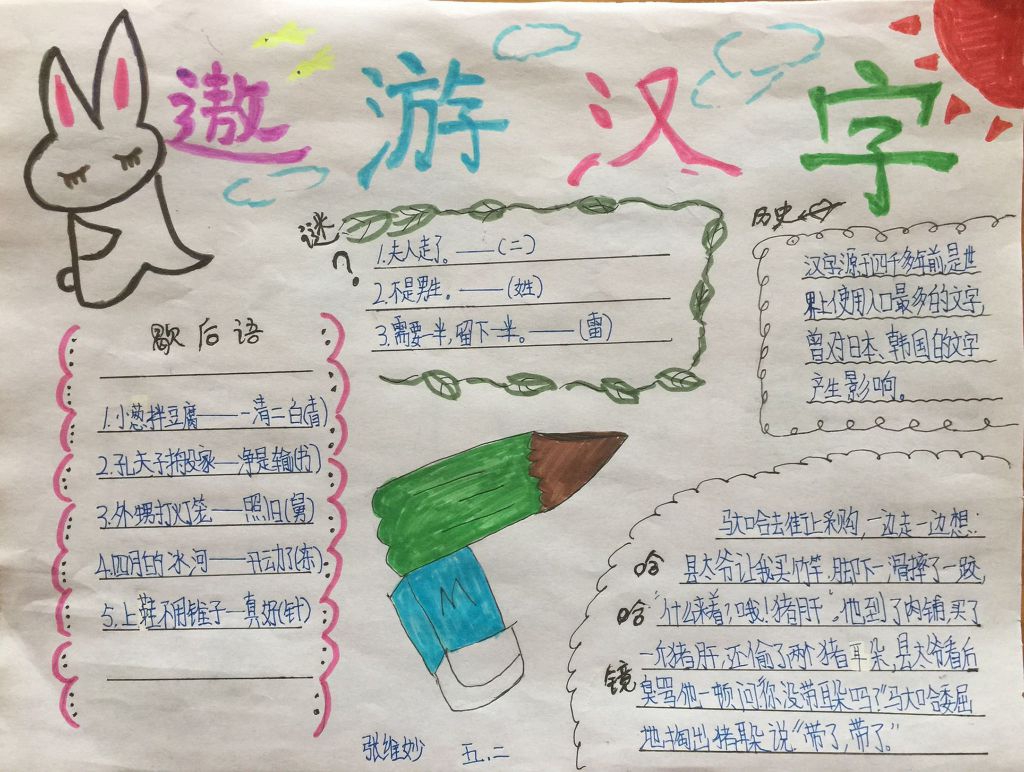 遨游汉字
谜?
1.夫人走了。——(二)
2.不是男生。——(姓)
3.需要一半,留下一半。——(雷)
历史
汉字源于四千多年前,是世
界上使用人口最多的文字,
曾对日本、韩国的文字
产生影响。
歇后语
1.小葱拌豆腐——一清二白(青)
2.孔夫子搬家—净是输(书)
3.外甥打灯笼——照旧(舅)
4.四月的冰河——开动了(冻)
5.上鞋不用锥子—真好(针)
哈哈镜
马大哈去街上采购,一边走一边想:
县太爷让我买竹竿,脚下一滑摔了一跤,
"什么来着?哦!猪肝"。他到了肉铺,买了
一个猪肝,还偷了两个猪耳朵,县太爷看后
臭骂他一顿问:"你没带耳朵吗?"马大哈委屈
地掏出猪耳朵说"带了,带了。"
张维妙 五.二
M